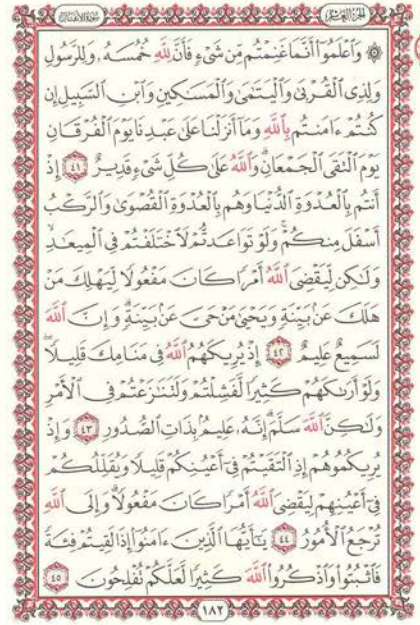 سورة الأنفال الجزء العاشر
۞ وَٱعۡلَمُوٓاْ أَنَّمَا غَنِمۡتُم مِّن شَيۡءٖ فَأَنَّ لِلَّهِ خُمُسَهُۥ وَلِلرَّسُولِ
وَلِذِي ٱلۡقُرۡبَىٰ وَٱلۡيَتَٰمَىٰ وَٱلۡمَسَٰكِينِ وَٱبۡنِ ٱلسَّبِيلِ إِن
كُنتُمۡ ءَامَنتُم بِٱللَّهِ وَمَآ أَنزَلۡنَا عَلَىٰ عَبۡدِنَا يَوۡمَ ٱلۡفُرۡقَانِ
يَوۡمَ ٱلۡتَقَى ٱلۡجَمۡعَانِۗ وَٱللَّهُ عَلَىٰ كُلِّ شَيۡءٖ قَدِيرٌ ٤١ إِذۡ
أَنتُم بِٱلۡعُدۡوَةِ ٱلدُّنۡيَا وَهُم بِٱلۡعُدۡوَةِ ٱلۡقُصۡوَىٰ وَٱلرَّكۡبُ
أَسۡفَلَ مِنكُمۡۚ وَلَوۡ تَوَاعَدتُّمۡ لَٱخۡتَلَفۡتُمۡ فِي ٱلۡمِيعَٰدِ
وَلَٰكِن لِّيَقۡضِيَ ٱللَّهُ أَمۡرٗا كَانَ مَفۡعُولٗا لِّيَهۡلِكَ مَنۡ
هَلَكَ عَنۢ بَيِّنَةٖ وَيَحۡيَىٰ مَنۡ حَيَّ عَنۢ بَيِّنَةٖۗ وَإِنَّ ٱللَّهَ
لَسَمِيعٌ عَلِيمٌ ٤٢ إِذۡ يُرِيكَهُمُ ٱللَّهُ فِي مَنَامِكَ قَلِيلٗاۖ
وَلَوۡ أَرَىٰكَهُمۡ كَثِيرٗا لَّفَشِلۡتُمۡ وَلَتَنَٰزَعۡتُمۡ فِي ٱلۡأَمۡرِ
وَلَٰكِنَّ ٱللَّهَ سَلَّمَۚ إِنَّهُۥ عَلِيمُۢ بِذَاتِ ٱلصُّدُورِ ٤٣ وَإِذۡ
يُرِيكُمُوهُمۡ إِذِ ٱلۡتَقَيۡتُمۡ فِيٓ أَعۡيُنِكُمۡ قَلِيلٗا وَيُقَلِّلُكُمۡ
فِيٓ أَعۡيُنِهِمۡ لِيَقۡضِيَ ٱللَّهُ أَمۡرٗا كَانَ مَفۡعُولٗاۗ وَإِلَى ٱللَّهِ
تُرۡجَعُ ٱلۡأُمُورُ ٤٤ يَٰٓأَيُّهَا ٱلَّذِينَ ءَامَنُوٓاْ إِذَا لَقِيتُمۡ فِئَةٗ
فَٱثۡبُتُواْ وَٱذۡكُرُواْ ٱللَّهَ كَثِيرٗا لَّعَلَّكُمۡ تُفۡلِحُونَ ٤٥
١٨٢